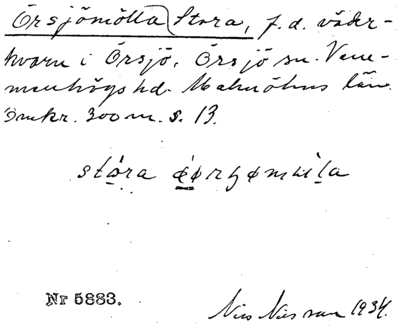 Örsjömölla Stora, f.d. väder-
kvarn i Örsjö, Örsjö sn. Vem-
menhögs hd. Malmöhus län.
Omkr. 300 m. s. 13.
stóra
Nr 5883.
Nils Nilsson 1934.